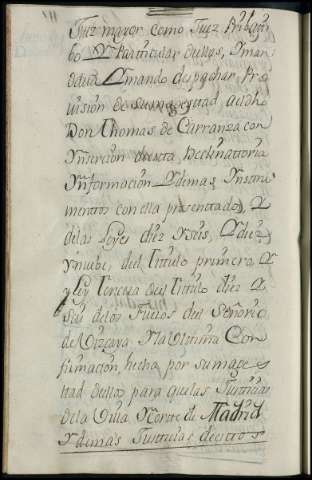 Juez mayor como Juez Pribati
bo Y Particular dellos, Y man
do Y mando despachar Pro
vision de su magestad al dho
Don Thomas de Carranza con
Ynsercion desta, Declinattoria
Ynformacion Y demas Ynstru
mentos con ella presenttados, Y
de las Leyes diez y seis, Y diez
Y nuebe, del Titulo primero, Y
Ley Tercera del Titulo diez y
seis de los Fueros del Señorio
de Vizcaya Y la Ultima Con
firmacion, hecha por su mages
tad dellos para que las Justicias
de la Villa Y Corte de Madrid
Y demas Justicias destos